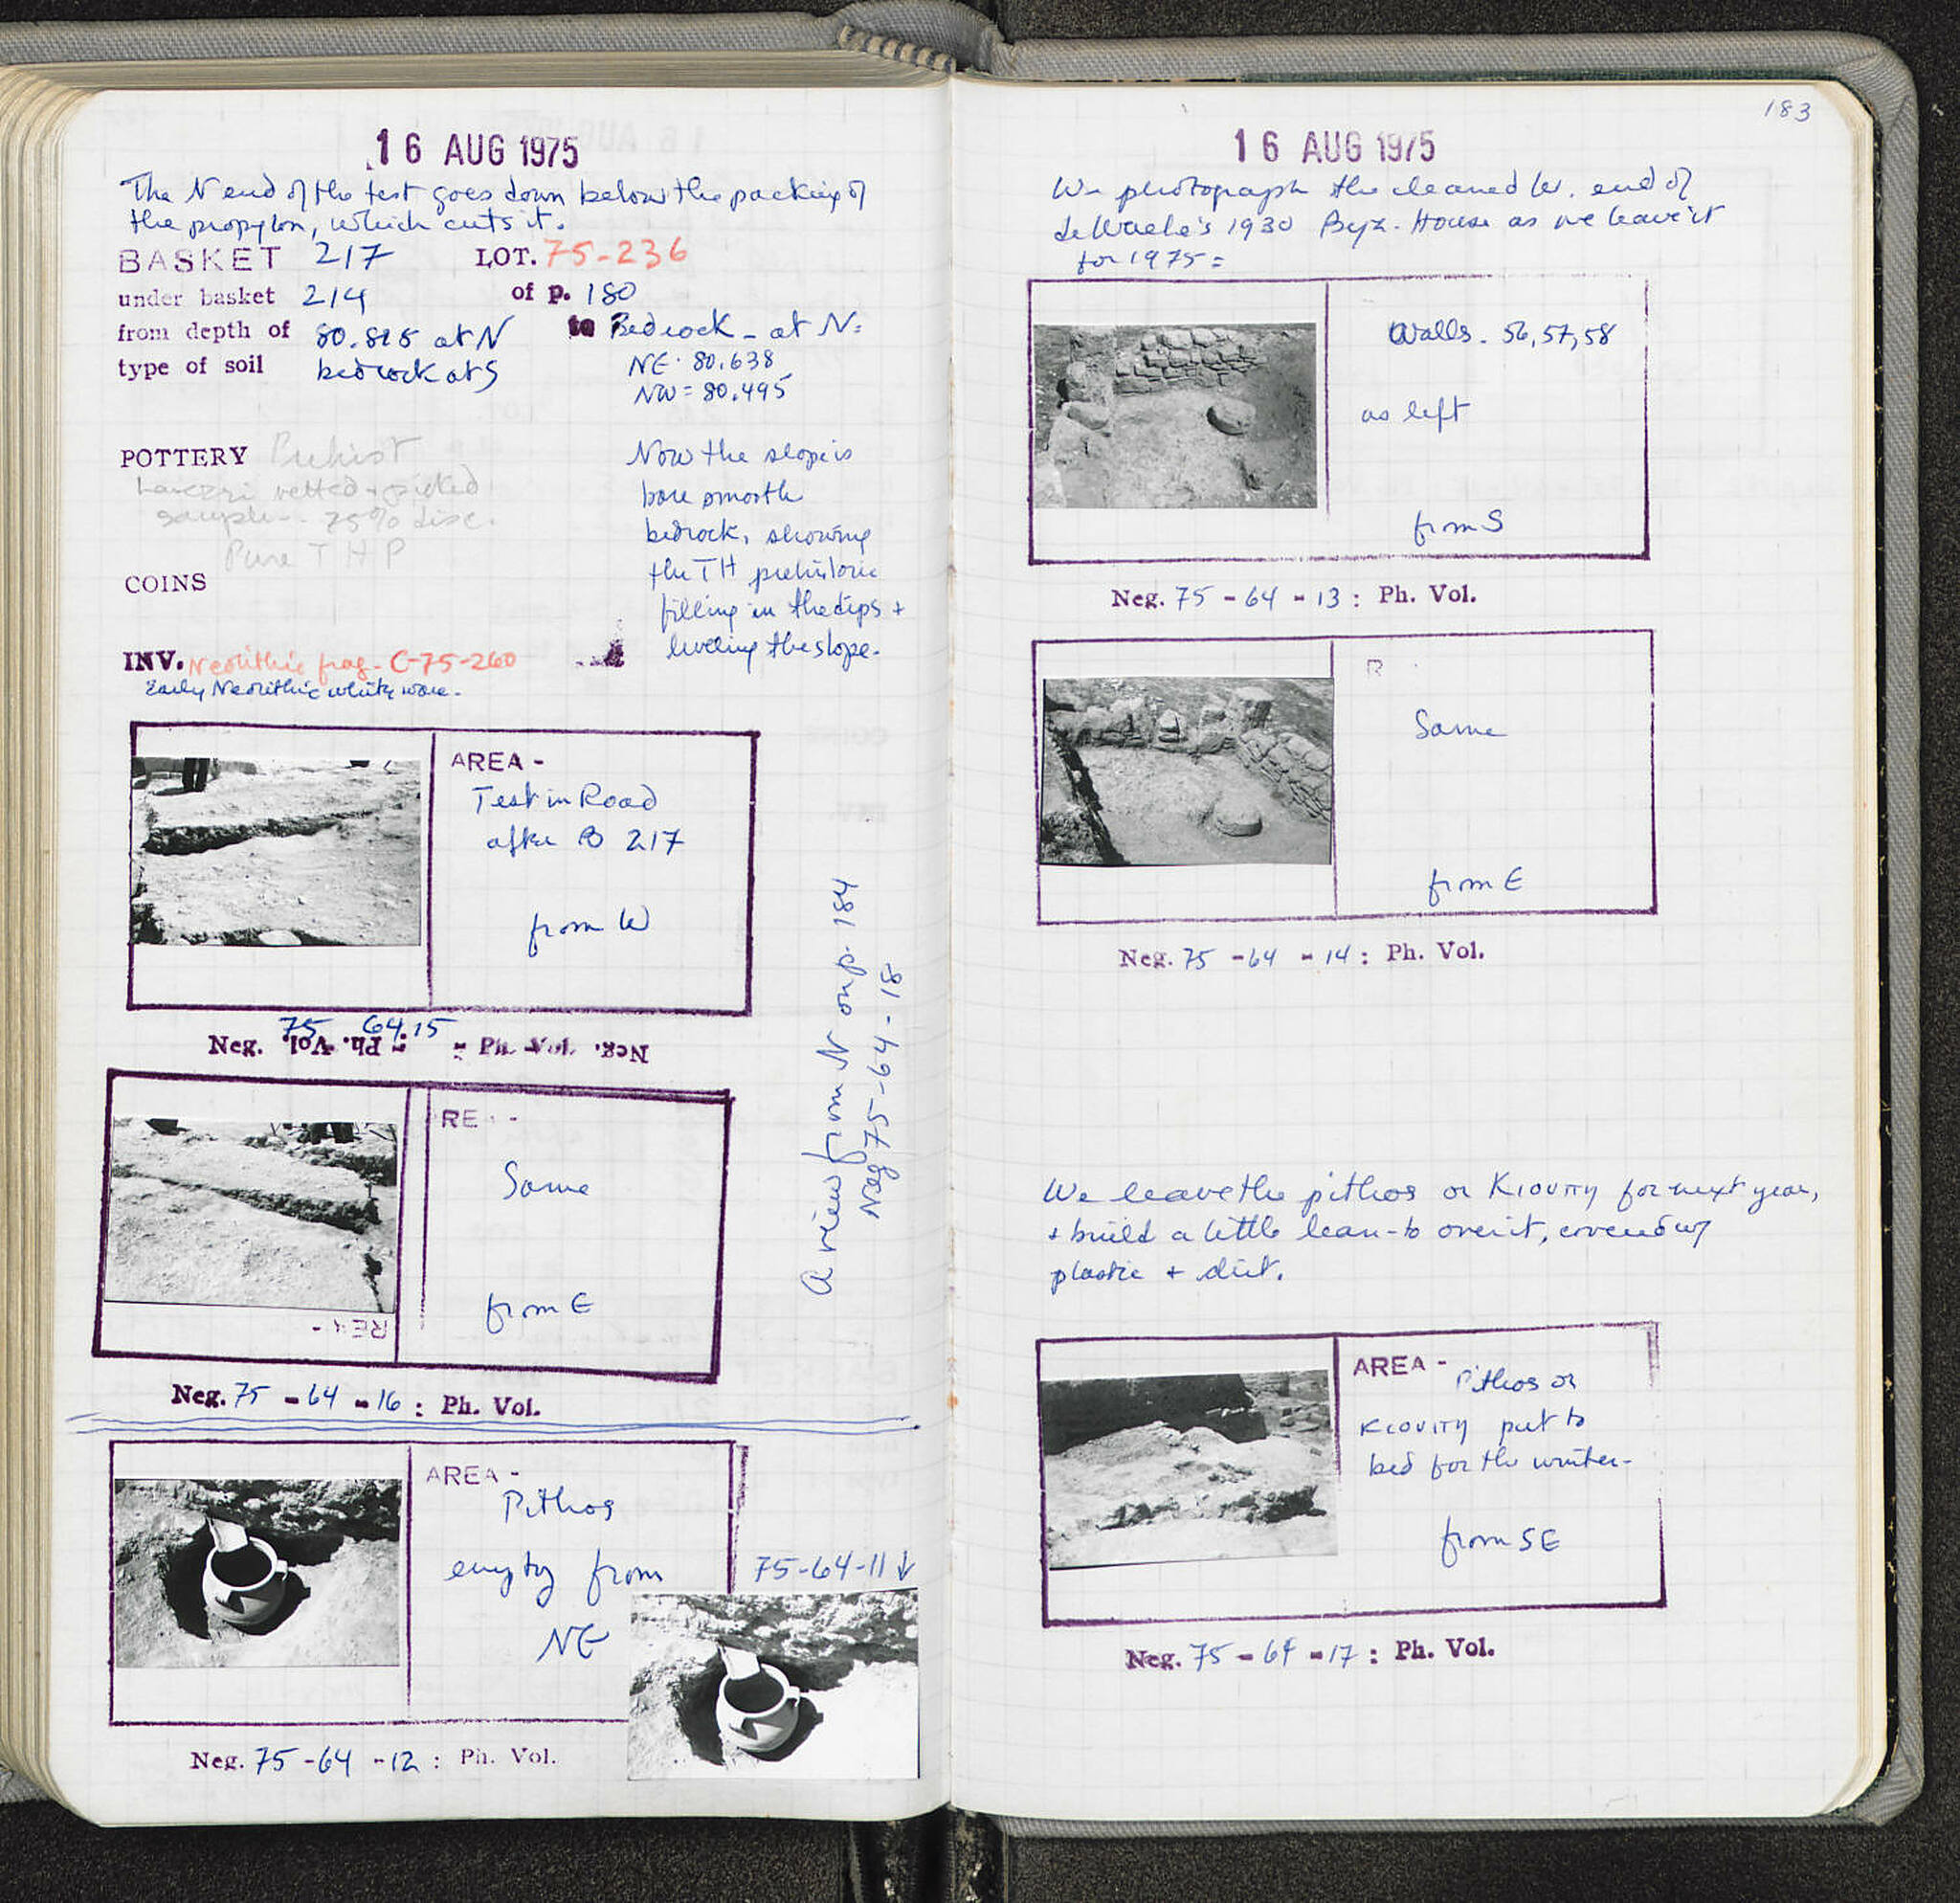 16 AUG 1975
The N end of the test goes down below the packing of
the propylon, which cuts it.
BASKET 217 LOT. 75-236
under basket 214 of p. 180
from depth of 80.815 at N to Bedrock - at N:
type of soil bedrock at S NE: 80.638
NW = 80.495
POTTERY Prehist
vetted + picked
sample - 75% disc.
Pure T H P
COINS
Now the slope is
bare smooth
bedrock, showing
the TH prehistoric
filling in the dips +
leveling the slope.
INV. Neolithic frag - C-75-260
Early Neolithic white ware.
AREA -
Test in Road
after B 217
from W
Neg. 75 64.15 : Ph. Vol. Neg.
A view from N on p. 184
Neg 75-64-18
RE -
Same
from E
Neg. 75 - 64 - 16 : Ph. Vol.
AREA -
Pithos
empty from
NE
75-64-11 ↓
Neg. 75 - 64 - 12 : Ph. Vol.
183
16 AUG 1975
We photograph the cleaned W. end of
deWaele's 1930 Byz. House as we leave it
for 1975 =
Walls - 56, 57, 58
as left
from S
Neg. 75 - 64 - 13 : Ph. Vol.
R
Same
from E
Neg. 75 - 64 - 14 : Ph. Vol.
We leave the pithos or for next year,
+ build a little lean-to over it, covered w/
plastic + dirt.
AREA - Pithos or
put to
bed for the winter -
from SE
Neg. 75 - 64 - 17 : Ph. Vol.